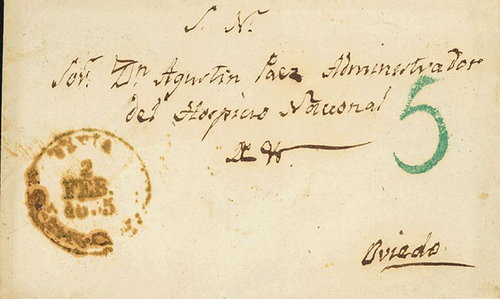 S. N.
Sor. Dn Agustin Paez Administrador
del Hospicio Nacional
5
2
FEB
Oviedo